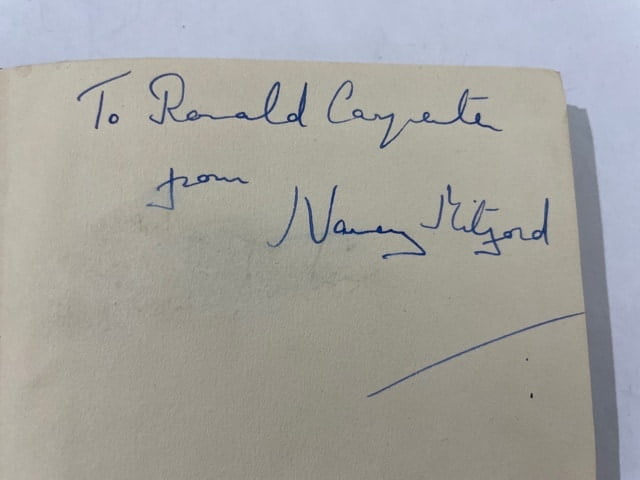 To Ronald Carpenter
from
Nancy Mitford